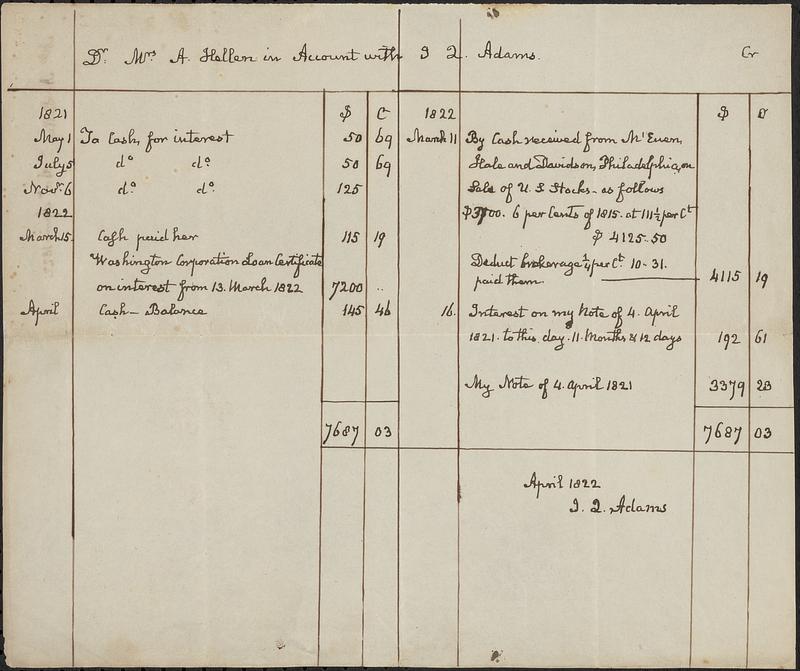 Dr. Mrs A. Hellen in Account with J. Q. Adams. Cr
1821 $ C
May 1 To Cash, for interest 50 69
July 5 do do 50 69
Novr. 6 do. do. 125
1822
March 15. Cash paid her 115 19
Washington Corporation Loan Certificate
on interest from 13. March 1822 7200 ..
April Cash — Balance 145 46
7687 03
1822 $ C
March 11 By Cash received from Mc Euen,
Hale and Davidson, Philadelphia, on
Sale of U. S Stocks - as follows
$3700. 6 per Cents of 1815. at 111½ per Ct
$ 4125.50
Deduct brokerage ¼ per Ct. 10-31.
paid them 4115 19
16. Interest on my Note of 4. April
1821. to this day. 11. Months & 12 days 192 61
My Note of 4. April 1821 3379 23
7687 03
April 1822
J. Q. Adams